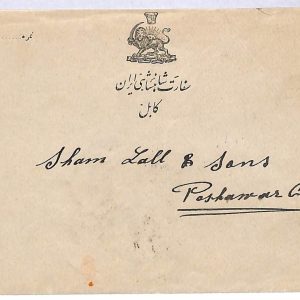 نمره
سفارت شاهنشاهی ایران
کابل
Sham Lall & Sons
Peshawar C